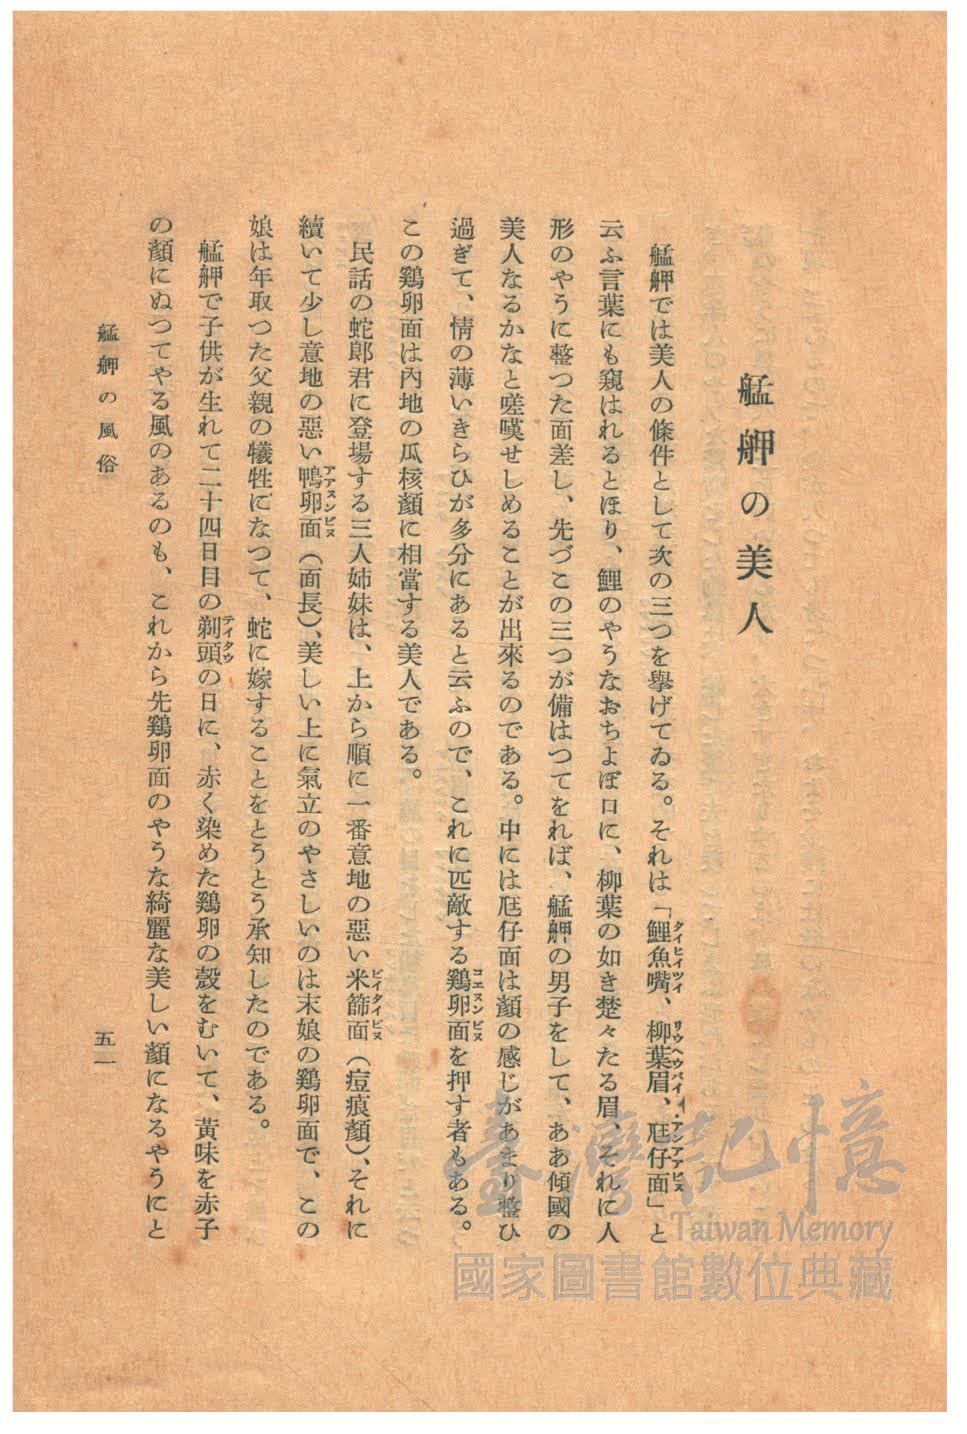 艋舺の美人
艋舺では美人の條件として次の三つを擧げてゐる。それは「鯉魚嘴、柳葉眉、尫仔面」と
云ふ言葉にも窺はれるとほり、鯉のやうなおちよぼ口に、柳葉の如き楚々たる眉、それに人
形のやうに整つた面差し、先づこの三つが備はつてをれば、艋舺の男子をして、ああ傾國の
美人なるかなと嗟嘆せしめることが出來るのである。中には尫仔面は顏の感じがあまり整ひ
過ぎて、情の薄いきらひが多分にあると云ふので、これに匹敵する鷄卵面を押す者もある。
この鷄卵面は內地の瓜核顏に相當する美人である。
民話の蛇郞君に登場する三人姉妹は、上から順に一番意地の惡い米篩面（痘痕顏）、それに
續いて少し意地の惡い鴨卵面（面長）、美しい上に氣立のやさしいのは末娘の鷄卵面で、この
娘は年取つた父親の犧牲になつて、蛇に嫁することをとうとう承知したのである。
艋舺で子供が生れて二十四日目の剃頭の日に、赤く染めた鷄卵の殼をむいて、黃味を赤子
の顏にぬつてやる風のあるのも、これから先鷄卵面のやうな綺麗な美しい顏になるやうにと
艋舺の風俗
五一
臺灣記憶
Taiwan Memory
國家圖書館數位典藏